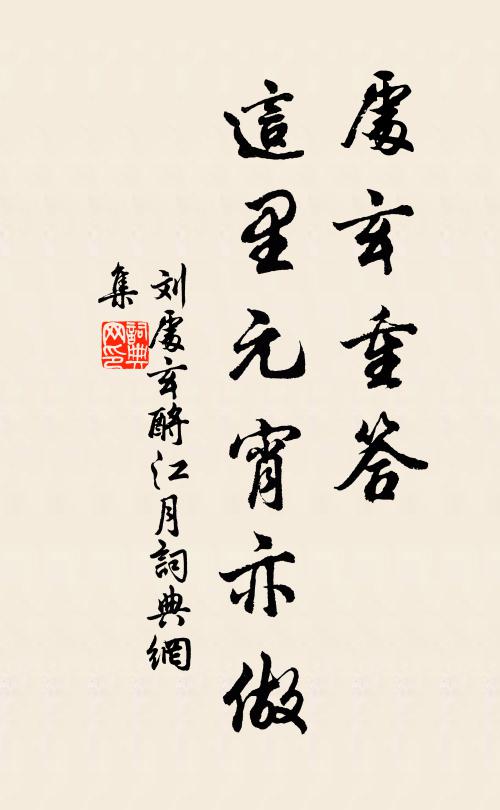 處玄重答
這里元宵亦做
刘處玄酹江月詞典網
集
詞典
网印